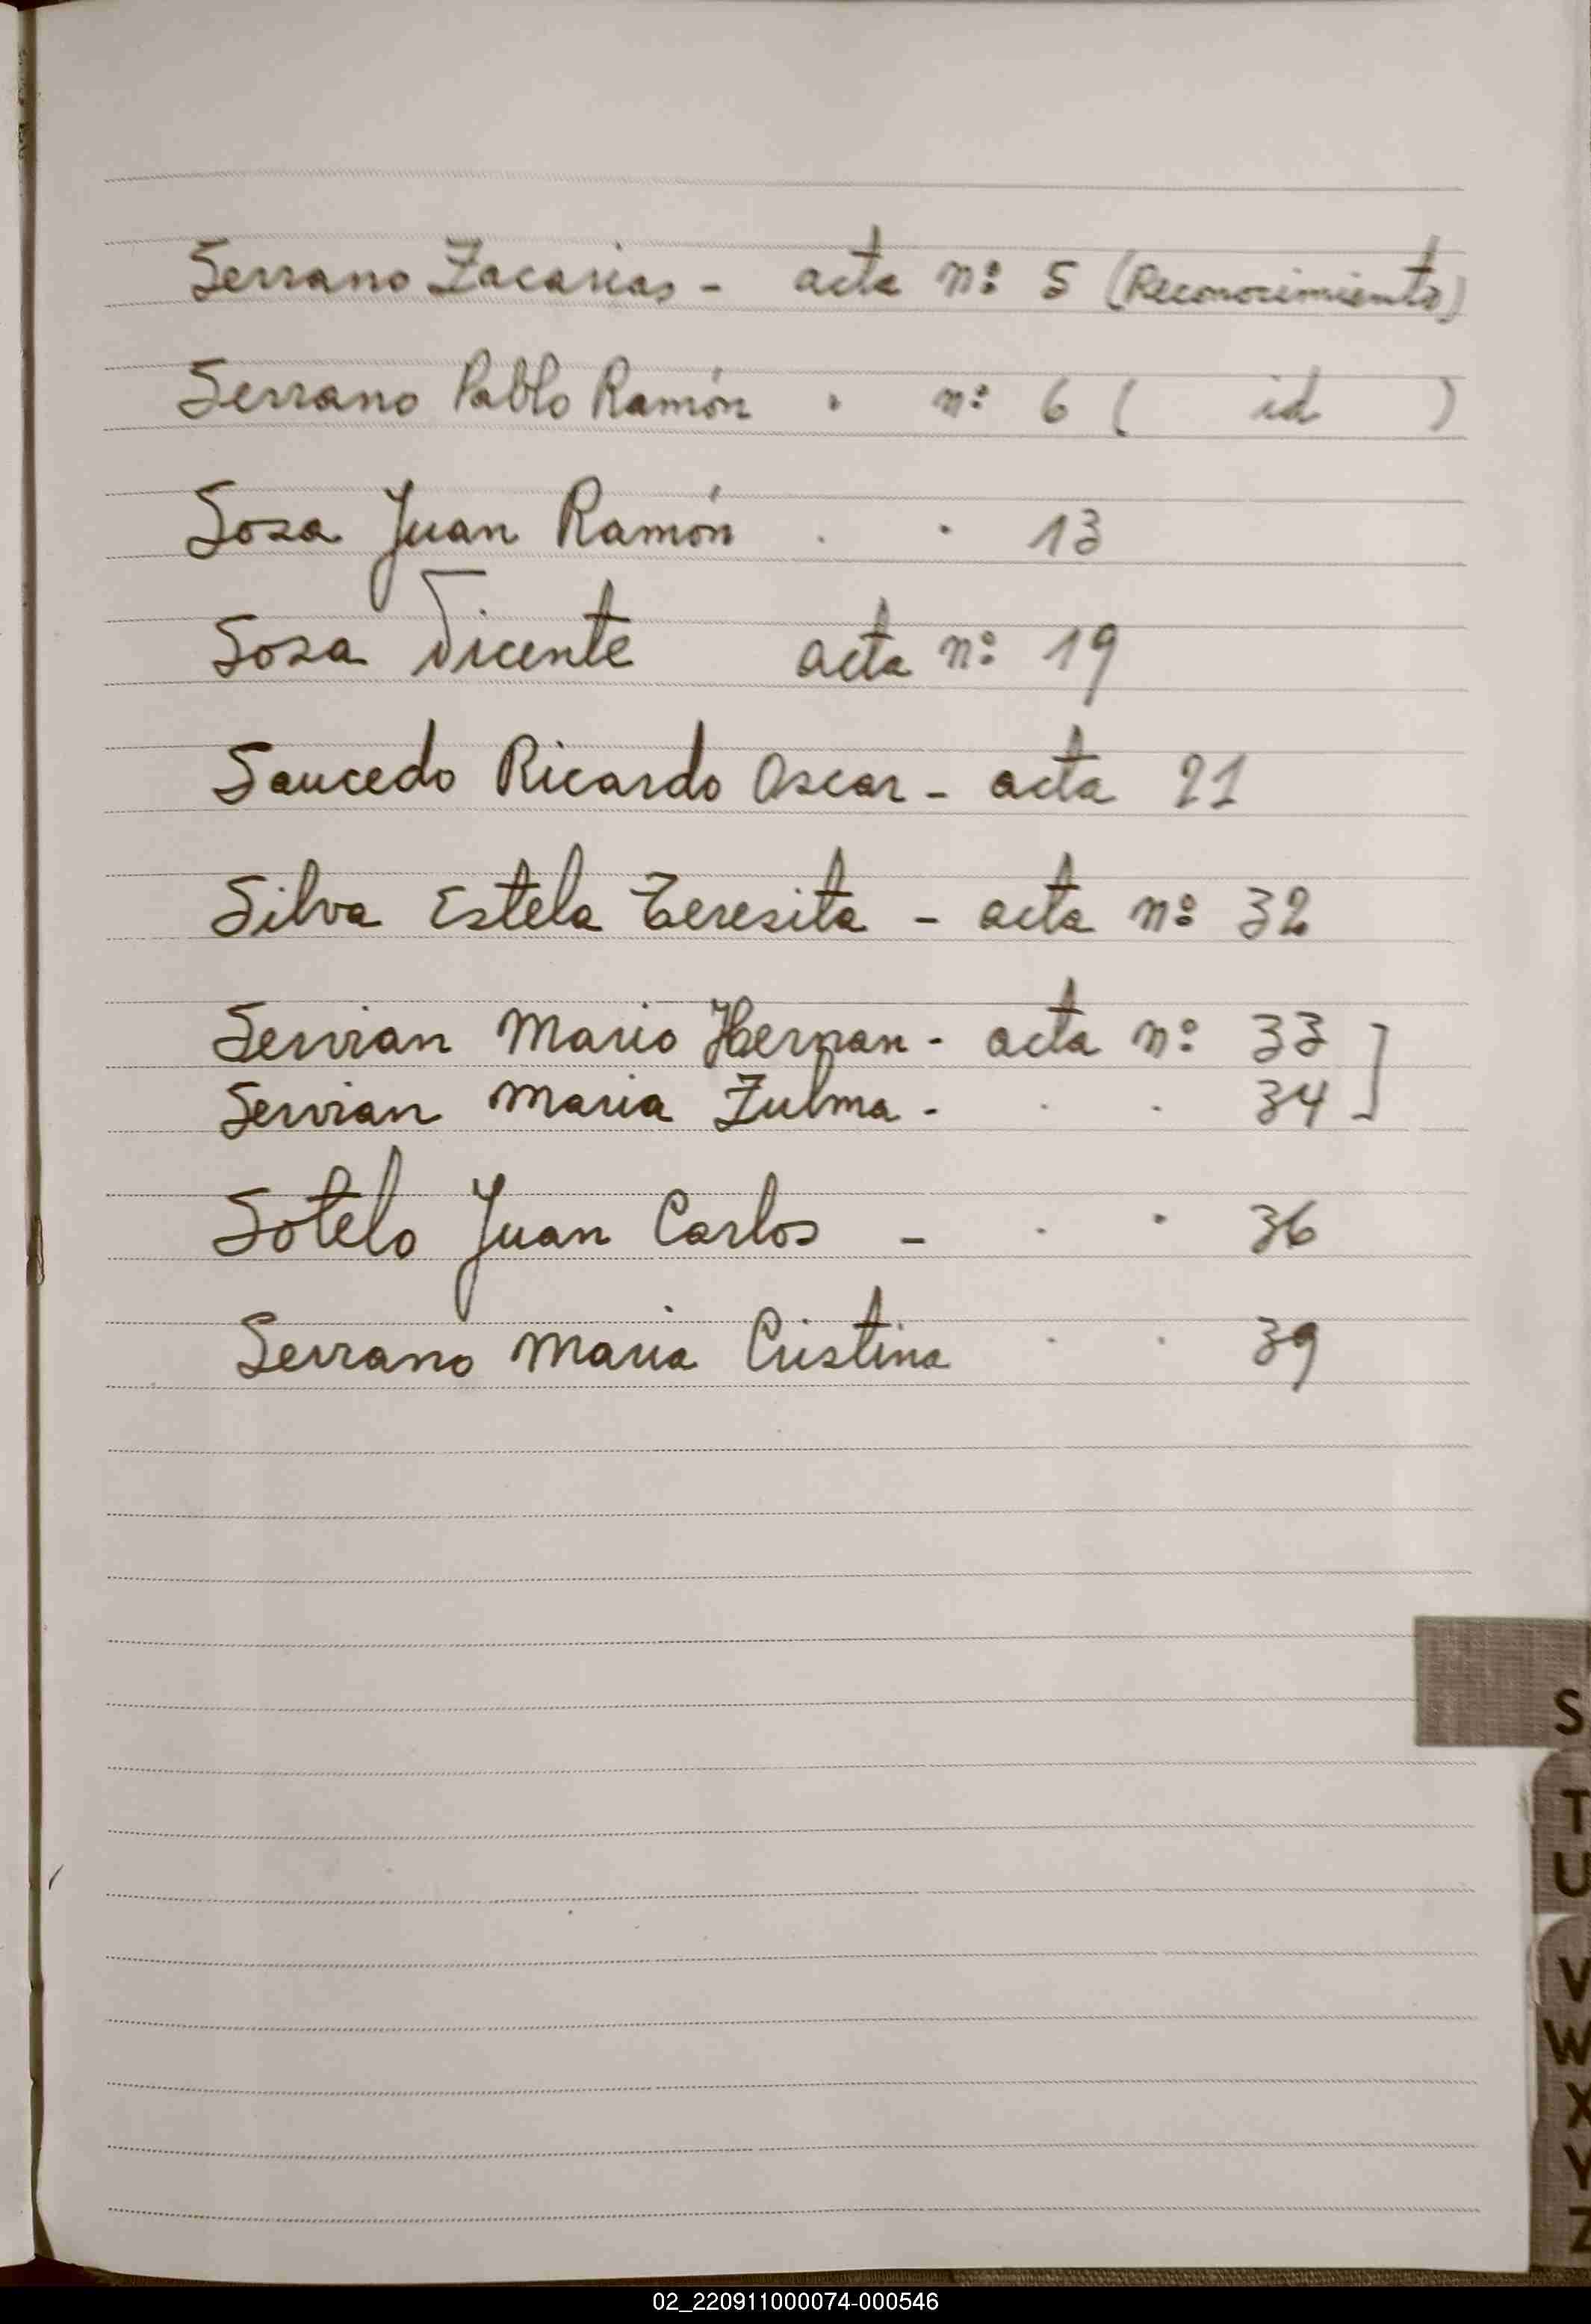 Serrano Zacarias - acta n: 5 (Reconocimiento)
Serrano Pablo Ramón " n: 6 ( id )
Sosa Juan Ramón . . 13
Sosa Vicente acta n: 19
Saucedo Ricardo Oscar - acta 21
Silva Estela Teresita - acta n: 32
Servian Mario Hernan - acta n: 33 ]
Servian Maria Zulma - . . 34
Sotelo Juan Carlos - . . 36
Serrano Maria Cristina . . 39
S
T
U
V
W
X
Y
Z
02_220911000074-000546